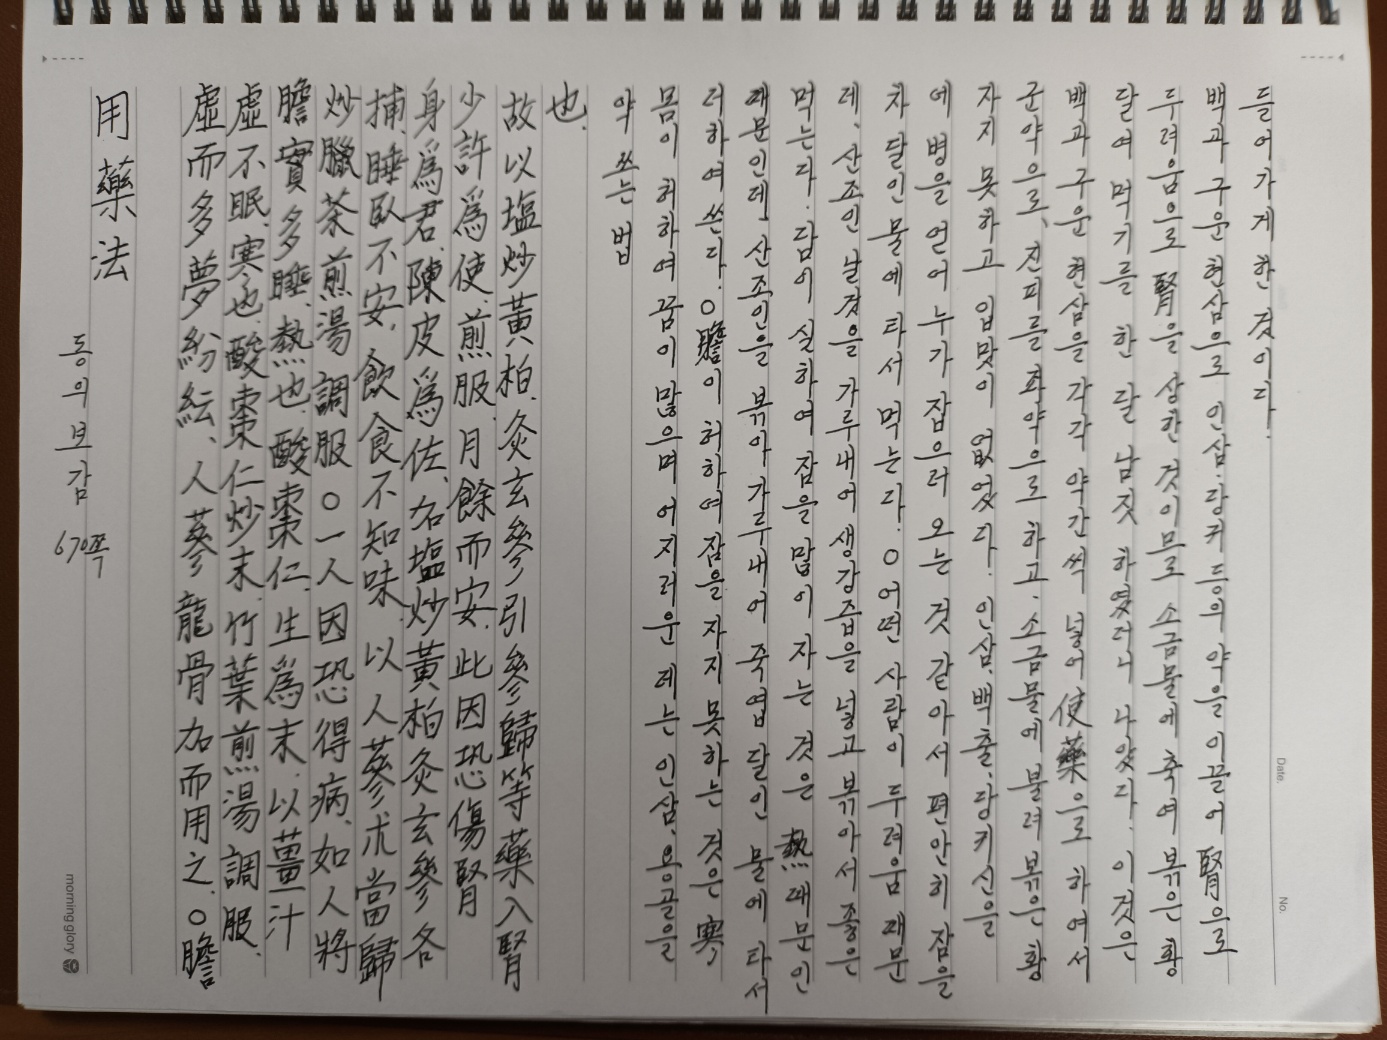 동의보감 670쪽
用藥法
虛而多夢紛紜、人蔘龍骨加而用之、○膽
虛不眠、寒也、酸棗仁炒末、竹葉煎湯調服、
膽實多睡、熱也、酸棗仁、生爲末、以薑汁
炒臘茶煎湯調服○一人因恐得病、如人將
捕、睡臥不安、飮食不知味、以人蔘朮當歸
身爲君、陳皮爲佐、加塩炒黃柏灸玄參各
少許爲使、煎服、月餘而安、此因恐傷腎
故以塩炒黃柏、灸玄參引參歸等藥入腎
也.
약 쓰는 법
몸이 허하여 꿈이 많으며 어지러운 데는 인삼, 용골을
더하여 쓴다. ○膽이 허하여 잠을 자지 못하는 것은 寒
때문인데, 산조인을 볶아 가루내어 죽엽 달인 물에 타서
먹는다. 담이 실하여 잠을 많이 자는 것은 熱때문인
데, 산조인 날것을 가루내어 생강즙을 넣고 볶아서 좋은
차 달인 물에 타서 먹는다. ○어떤 사람이 두려움 때문
에 병을 얻어 누가 잡으러 오는 것 같아서 편안히 잠을
자지 못하고 입맛이 없었다. 인삼, 백출, 당귀신을
군약으로, 진피를 좌약으로 하고, 소금물에 불려 볶은 황
백과 구운 현삼을 각각 약간씩 넣어 使藥으로 하여서
달여 먹기를 한 달 남짓 하였더니 나았다. 이것은
두려움으로 腎을 상한 것이므로 소금물에 축여 볶은 황
백과 구운 현삼으로 인삼, 당귀 등의 약을 이끌어 腎으로
들어가게 한 것이다.
Date.
No.
morning glory